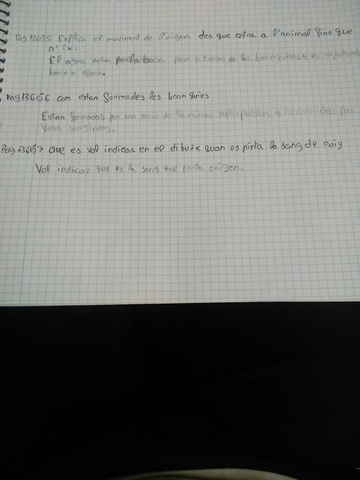 Pag 136E5 Explica el moviment de l'aigua des que entra a l'animal fins que
n'ix.
El agua entra per la boca passa a través de les branquies i es expulsada
Pag 136E6 com estan formades les branquies
Estan formades per una serie de làmines superposades e recorridas por
vasos sanguineos.
Pag 136E7 Que es vol indicar en el dibuix quan es pinta la sang de roig
Vol indicar que es la sang que porta oxigen.